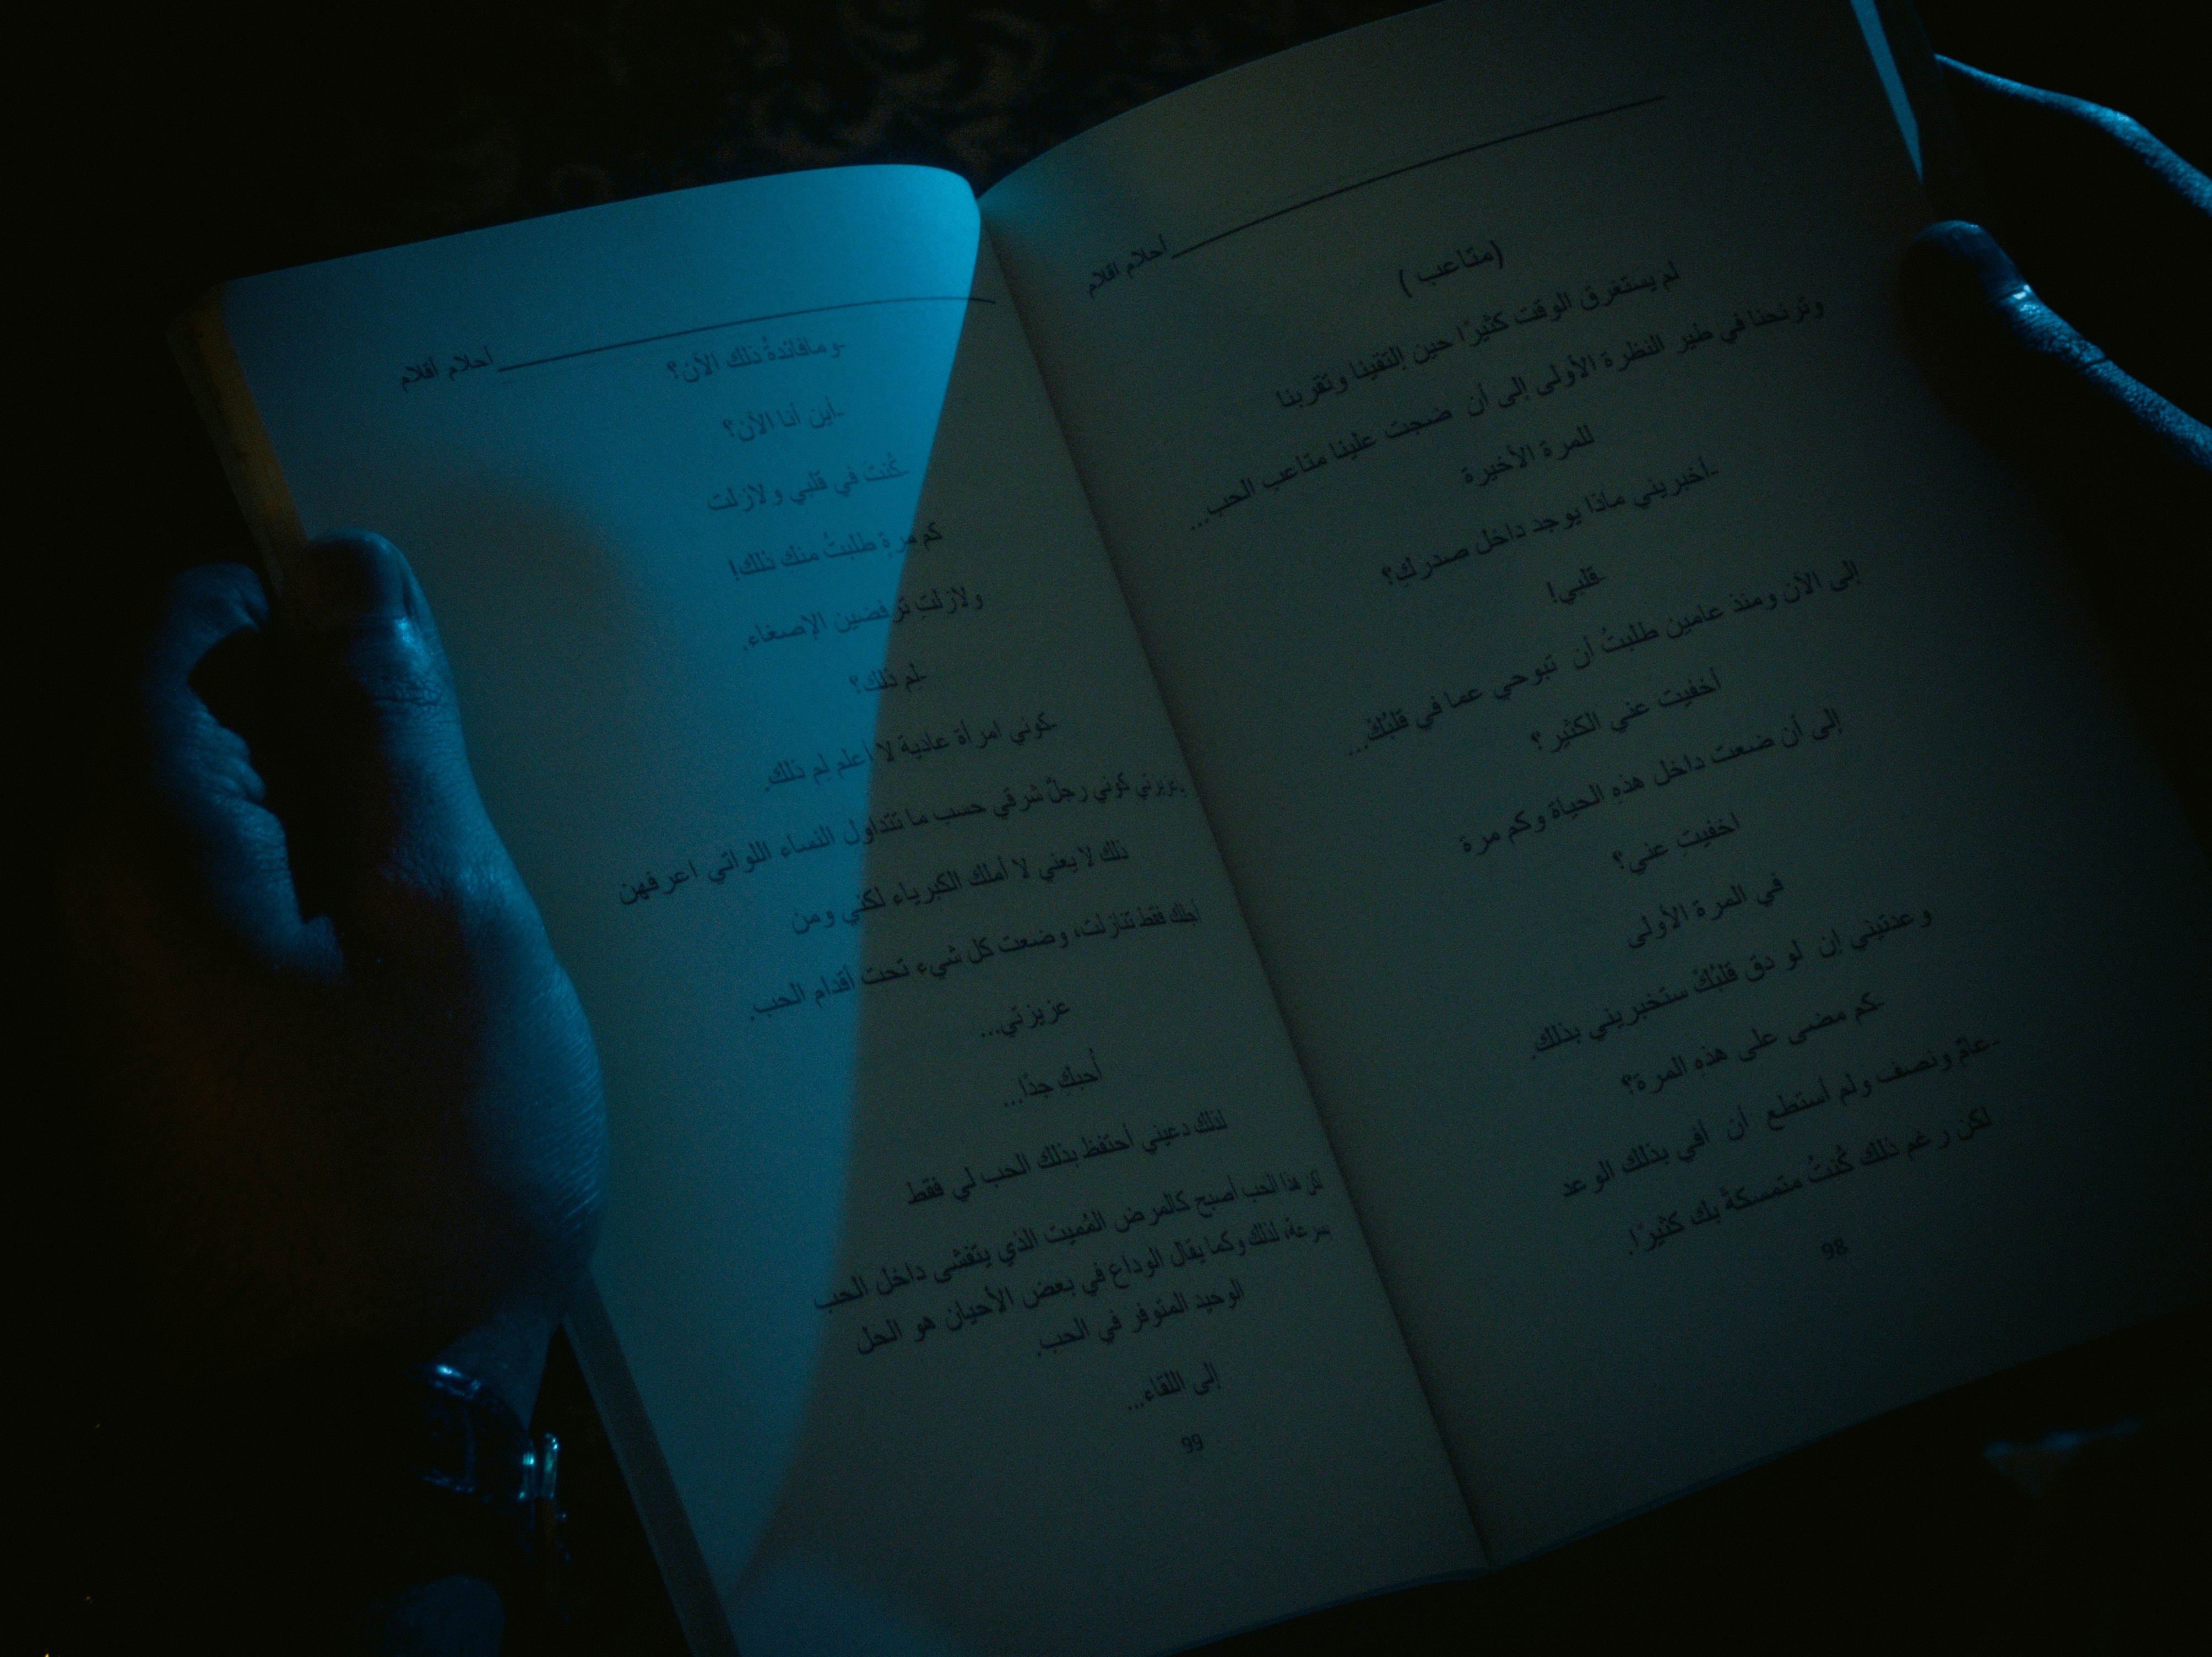 أحلام أقلام
(متاعب )
لم يستغرق الوقت كثيرًا حين إلتقينا وتقربنا
وترنحنا في طير النظرة الأولى إلى أن ضجت علينا متاعب الحب...
للمرة الأخيرة
-أخبريني ماذا يوجد داخل صدركِ؟
-قلبي!
إلى الآن ومنذ عامين طلبتُ أن تبوحي عما في قلبُكَ...
أخفيت عني الكثير؟
إلى أن ضعت داخل هذهِ الحياة وكم مرة
اخفيتِ عني؟
في المرة الأولى
وعدتيني إن لو دق قلبُكَ ستخبريني بذلك.
-كم مضى على هذهِ المرة؟
-عامٌ ونصف ولم أستطع أن أفي بذلك الوعد
لكن رغم ذلك كُنتُ متمسكةً بك كثيرًا.
98
أحلام أقلام
-ومافائدةُ ذلك الآن؟
-أين أنا الآن؟
-كُنت في قلبي ولازلت
كم مرةٍ طلبتُ منكِ ذلك!
ولازلتِ ترفضين الإصغاء.
-لِم ذلك؟
-كوني امرأة عادية لا أعلم لِم ذلك.
-عزيزتي كوني رجلٌ شرقي حسب ما تتداول النساء اللواتي اعرفهن
ذلك لا يعني لا أملك الكبرياء لكني ومن
أجلك فقط تنازلت، وضعت كل شيء تحت أقدام الحب.
عزيزتي...
أُحبكِ جدًا...
لذلك دعيني أحتفظ بذلك الحب لي فقط
لكن هذا الحب أصبح كالمرض المُميت الذي يتفشى داخل الحب
بسرعة، لذلك وكما يقال الوداع في بعض الأحيان هو الحل
الوحيد المتوفر في الحب.
إلى اللقاء...
99